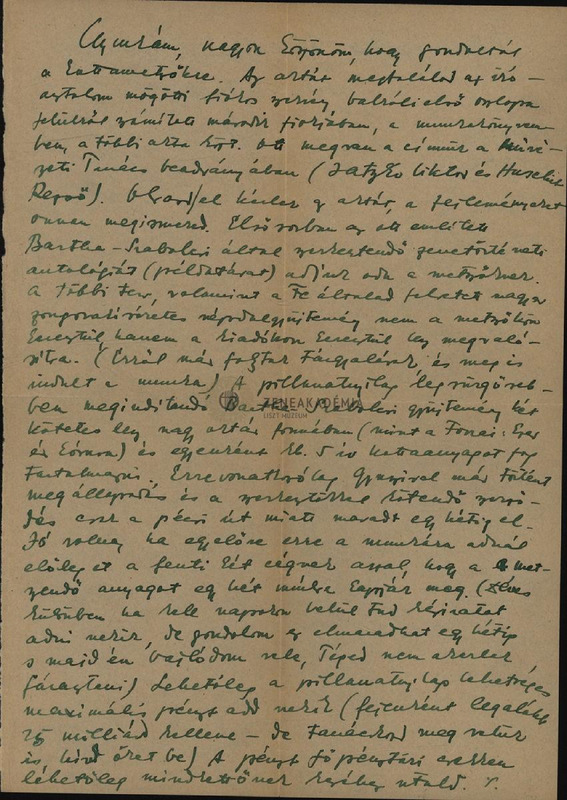 nagyon köszönöm, hogy gondoltál
a Kottametszőkre. Az aktát megtalálod az író-
asztalom mögötti fiókos szekrény, balról első oszlopa
felülről számított második fiókjában, a munkakönyvem-
ben, a többi akta közt. Ott megvan a címük a Művé-
szeti Tanács beadványában (Jatzkó Viktor és
Rezső). Olvasd el kérlek az aktát, a fejleményeket
onnan megismered. Elsősorban az ott említett
Bartha-Szabolcsi által szerkesztendő zenetörténeti
antológiát (példatárat) adjuk oda a metszőknek.
A többi terv, valamint a Te általad felvetett magyar
zongorakíséretes népdalgyűjtemény nem a metszőkön
keresztül, hanem a kiadókon keresztül lesz megvaló-
sítva. (Erről már folytak tárgyalások és meg is
indult a munka) A pillanatnyilag legsürgőseb-
ben megindítandó Bartha-Szabolcsi gyűjtemény két
kötetes lesz nagy oktáv formában (mint a Forrai: Ezer
év Kórusa) és egyenként kb. 5 ív kottaanyagot fog
tartalmazni. Erre vonatkozólag már történt
megállapodás és a szerkesztőkkel kötendő szerző-
dés csak a pécsi út miatt maradt egy hétig el.
Jó volna, ha egyelőre erre a munkára adnál
előleget a fenti két cégnek azzal, hogy a met-
szendő anyagot egy hét múlva kapják meg. (
különben ha kell napokon belül tud kéziratot
adni nekik, de gondolom ez elmaradhat egy hétig
s majd én bajlódom vele, Téged nem akarlak
fárasztani) Lehetőleg a pillanatnyilag lehetséges
maximális pénzt add nekik (fejenként legalább
25 milliárd kellene - de tanácskozd meg velük
is, hívd őket be) A pénzt főpénztári csekken
lehetőleg mindkettőnek utald.
ZENEAKADÉMIA
LISZT MÚZEUM